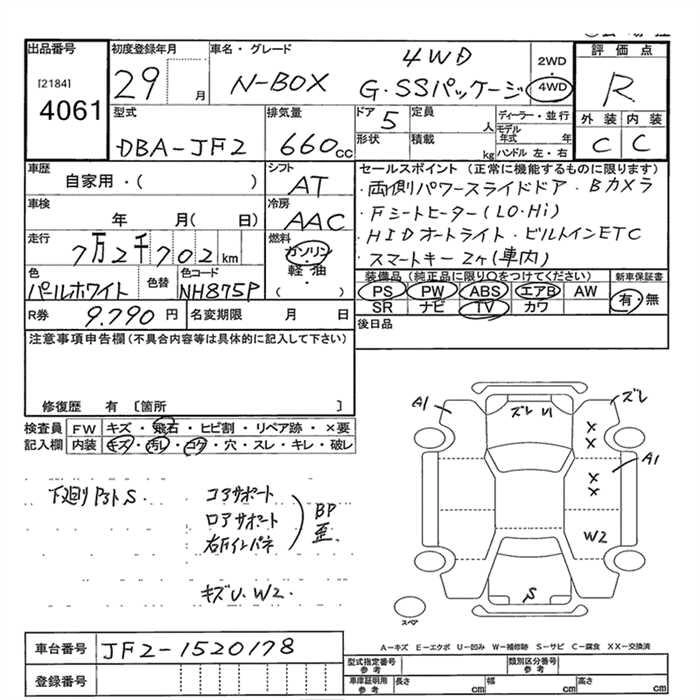 出品番号 初度登録年月 車名・グレード
[2184] 4061
29 月
N-BOX 4WD
G・SSパッケージ
2WD
4WD
評価点
R
外装 内装
C C
型式 排気量 ドア 定員 人 ディーラー・並行
DBA-JF2 660cc 5
形状 積載 kg モデル年式 年
ハンドル 左・右
車歴 シフト
自家用・( ) AT
車検 冷房
年 月( 日) AAC
走行 燃料
7万2千702km
ガソリン
軽・油
( )
色 色替 色コード
パールホワイト NH875P
R券 9.790円 名変期限 月 日
セールスポイント(正常に機能するものに限ります)
・両側パワースライドドア・Bカメラ
・Fシートヒーター(LO・Hi)
・HIDオートライト・ビルトインETC
・スマートキー2ヶ(車内)
装備品(純正品に限り○をつけてください) 新車保証書
PS PW ABS エアB AW 有・無
SR ナビ TV カワ
後日品
注意事項申告欄(不具合内容等は具体的に記入して下さい)
修復歴 有 〔箇所 〕
検査員 FW キズ・飛石・ヒビ割・リペア跡・×要
記入欄 内装 キズ・汚レ・コゲ・穴・スレ・キレ・破レ
下廻り P3ト S.
コアサポート
ロアサポート
右Fインパネ
BP
歪
キズU.W2.
A1 ズレ U ズレ
×
×
A1
×
×
W2
S
スペア
A-キズ E-エクボ U-凹み W-補修跡 S-サビ C-腐食 XX-交換済
車台番号 JF2-1520178
登録番号
型式指定番号 参考 類別区分番号 参考
車庫証明用 参考 長さ cm 幅 cm 高さ cm